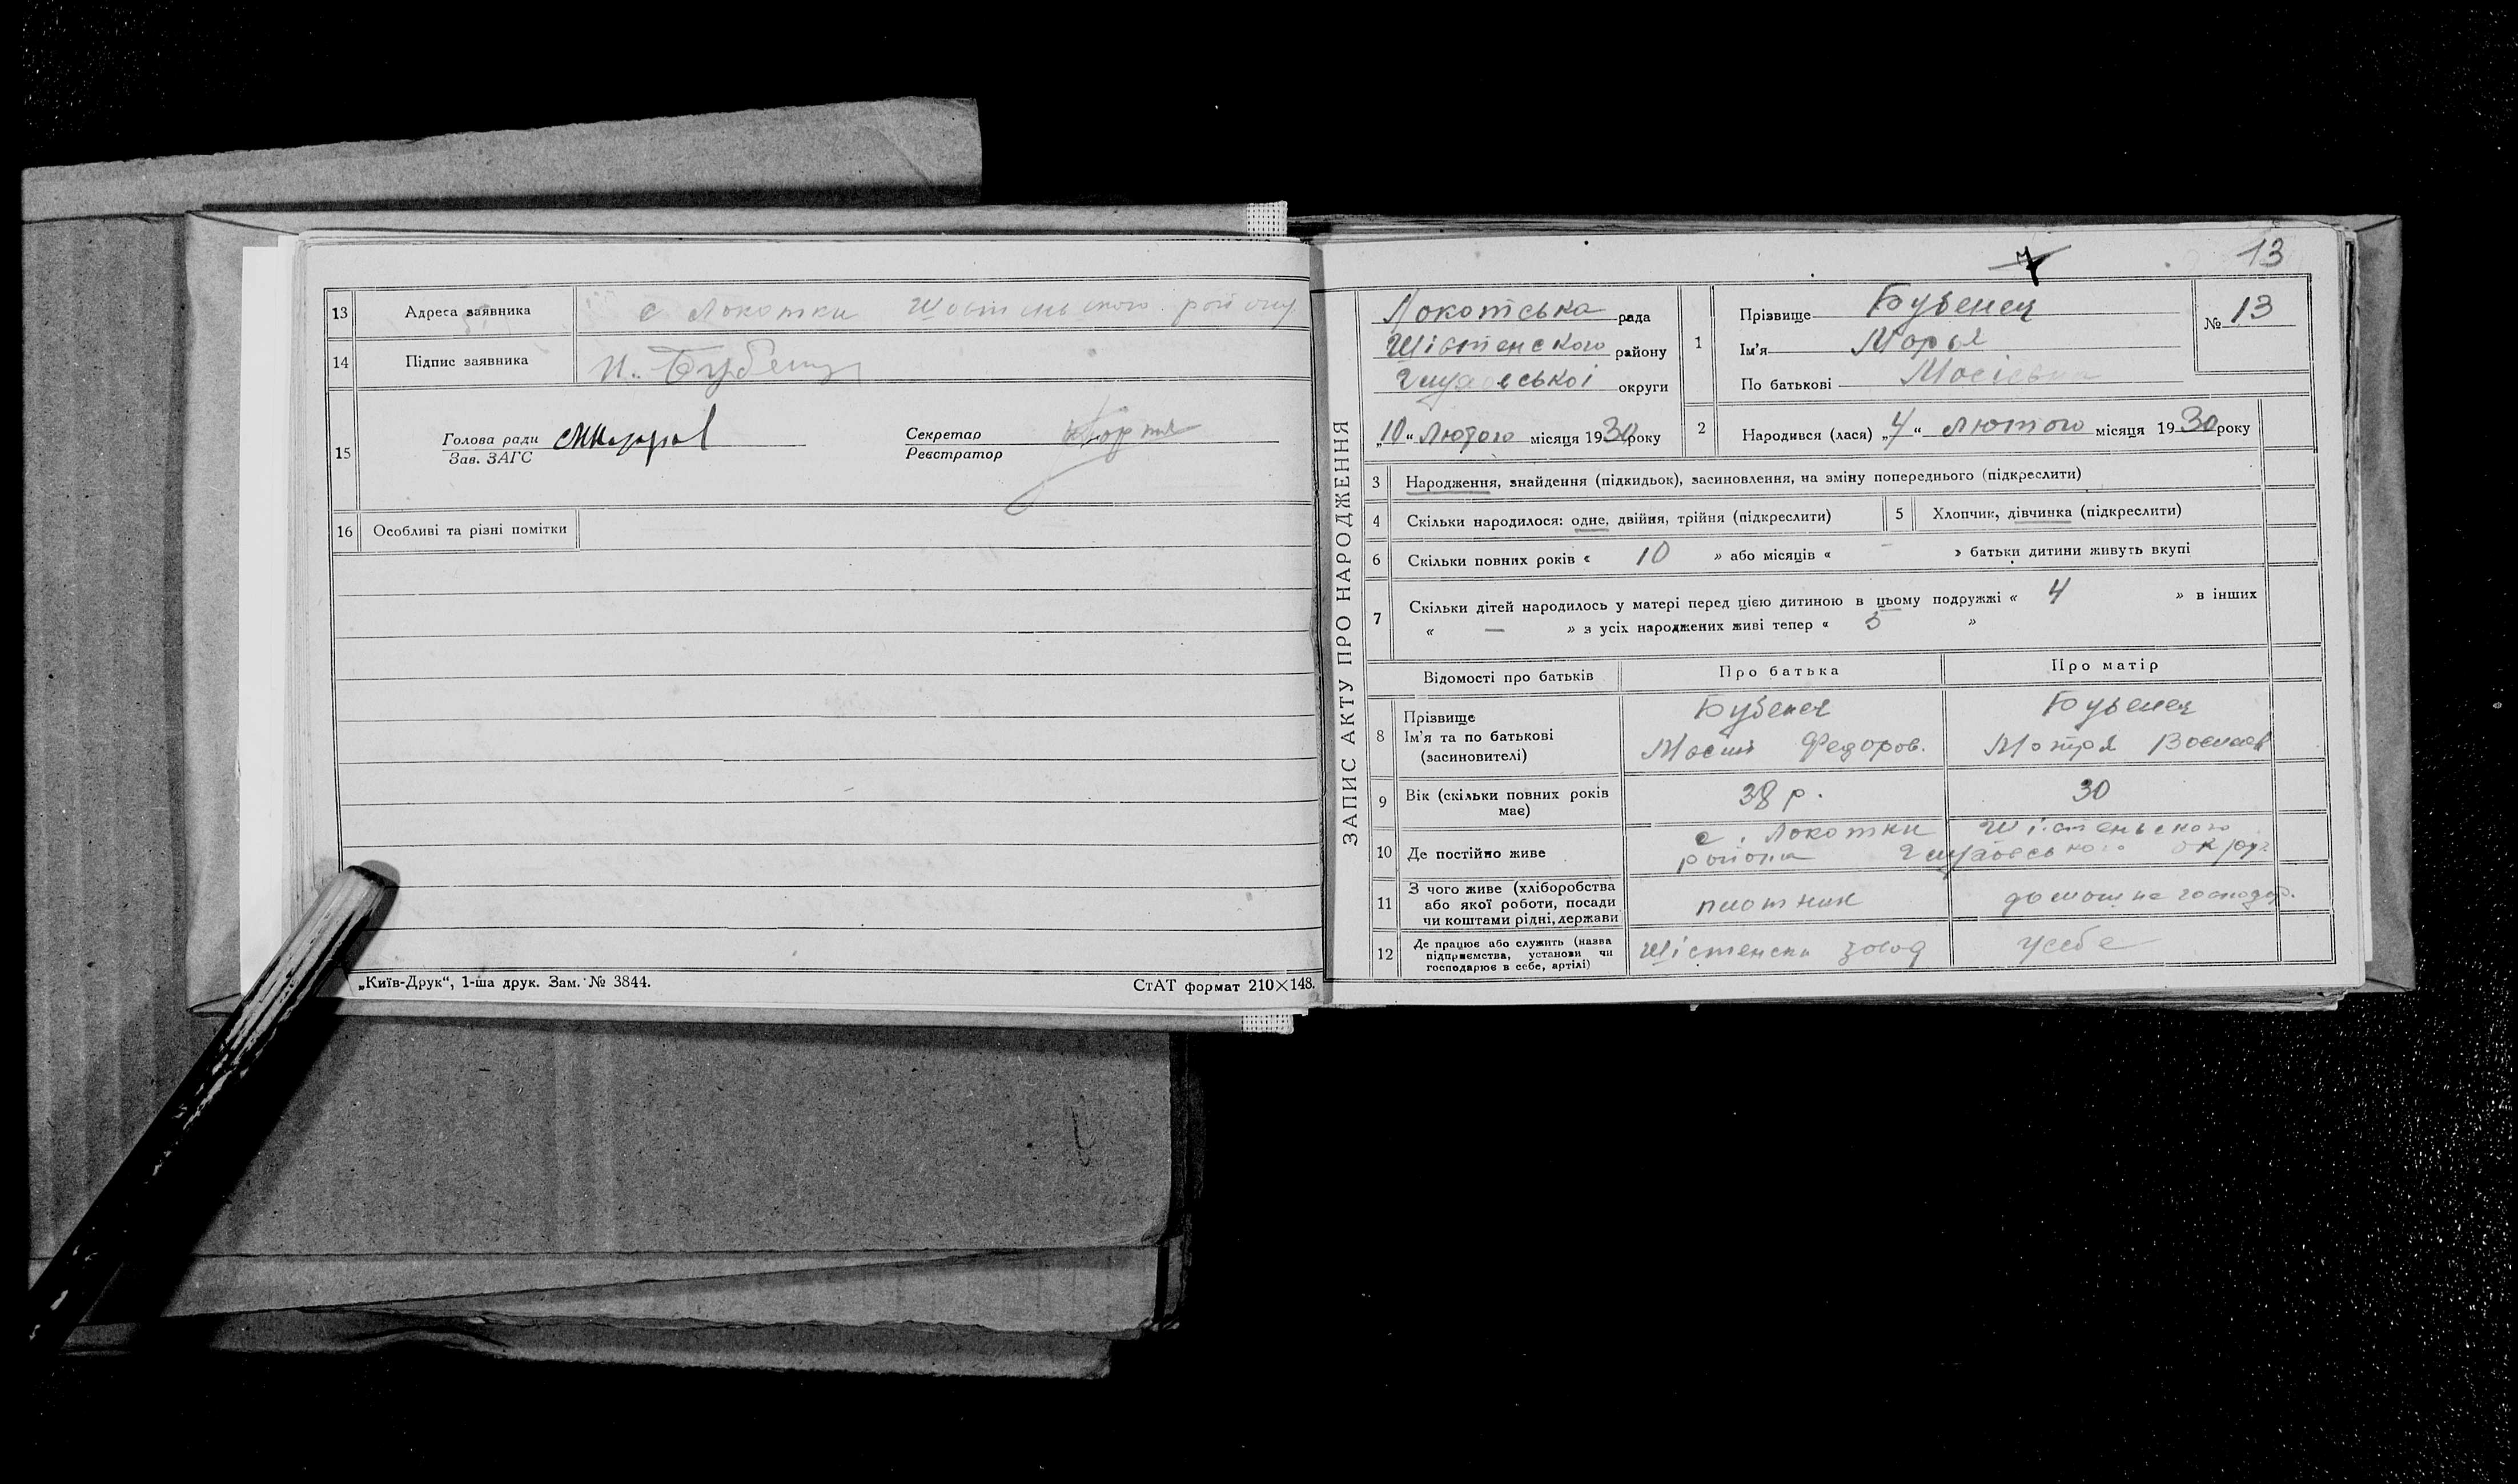 13 Адреса заявника с Локотки Шостенського району
14 Підпис заявника Бубенец
15 Голова ради
Зав. ЗАГС
Секретар
Реєстратор
16 Особливі та різні помітки
„Київ-Друк“, 1-ша друк. Зам. № 3844.
СтАТ формат 210×148.
7
13
ЗАПИС АКТУ ПРО НАРОДЖЕННЯ
Локотська рада
Шістенского району
округи
„10“ Лютого місяця 1930 року
1 Прізвище Бубенец
Ім'я Марья
По батькові Мосіевна
№ 13
2 Народився (лася) „4“ Лютого місяця 1930 року
3 Народження, знайдення (підкидьок), засиновлення, на зміну попереднього (підкреслити)
4 Скільки народилося: одне, двійня, трійня (підкреслити)
5 Хлопчик, дівчинка (підкреслити)
6 Скільки повних років « 10 » або місяців « - » батьки дитини живуть вкупі
7 Скільки дітей народилось у матері перед цією дитиною в цьому подружжі « 4 » в інших
« — » з усіх народжених живі тепер « 5 »
Відомості про батьків
Про батька
Про матір
8 Прізвище
Ім'я та по батькові
(засиновителі)
Бубенец
Мосий Федоров.
Бубенец
Мотря
9 Вік (скільки повних років має)
38 р.
30
10 Де постійно живе
с. Локотки Шістеньского
района округ
11 З чого живе (хліборобства
або якої роботи, посади
чи коштами рідні, держави
плотник
домашне господар.
12 Де працює або служить (назва
підприємства, установи чи
господарює в себе, артілі)
Шістенски завод
у себе